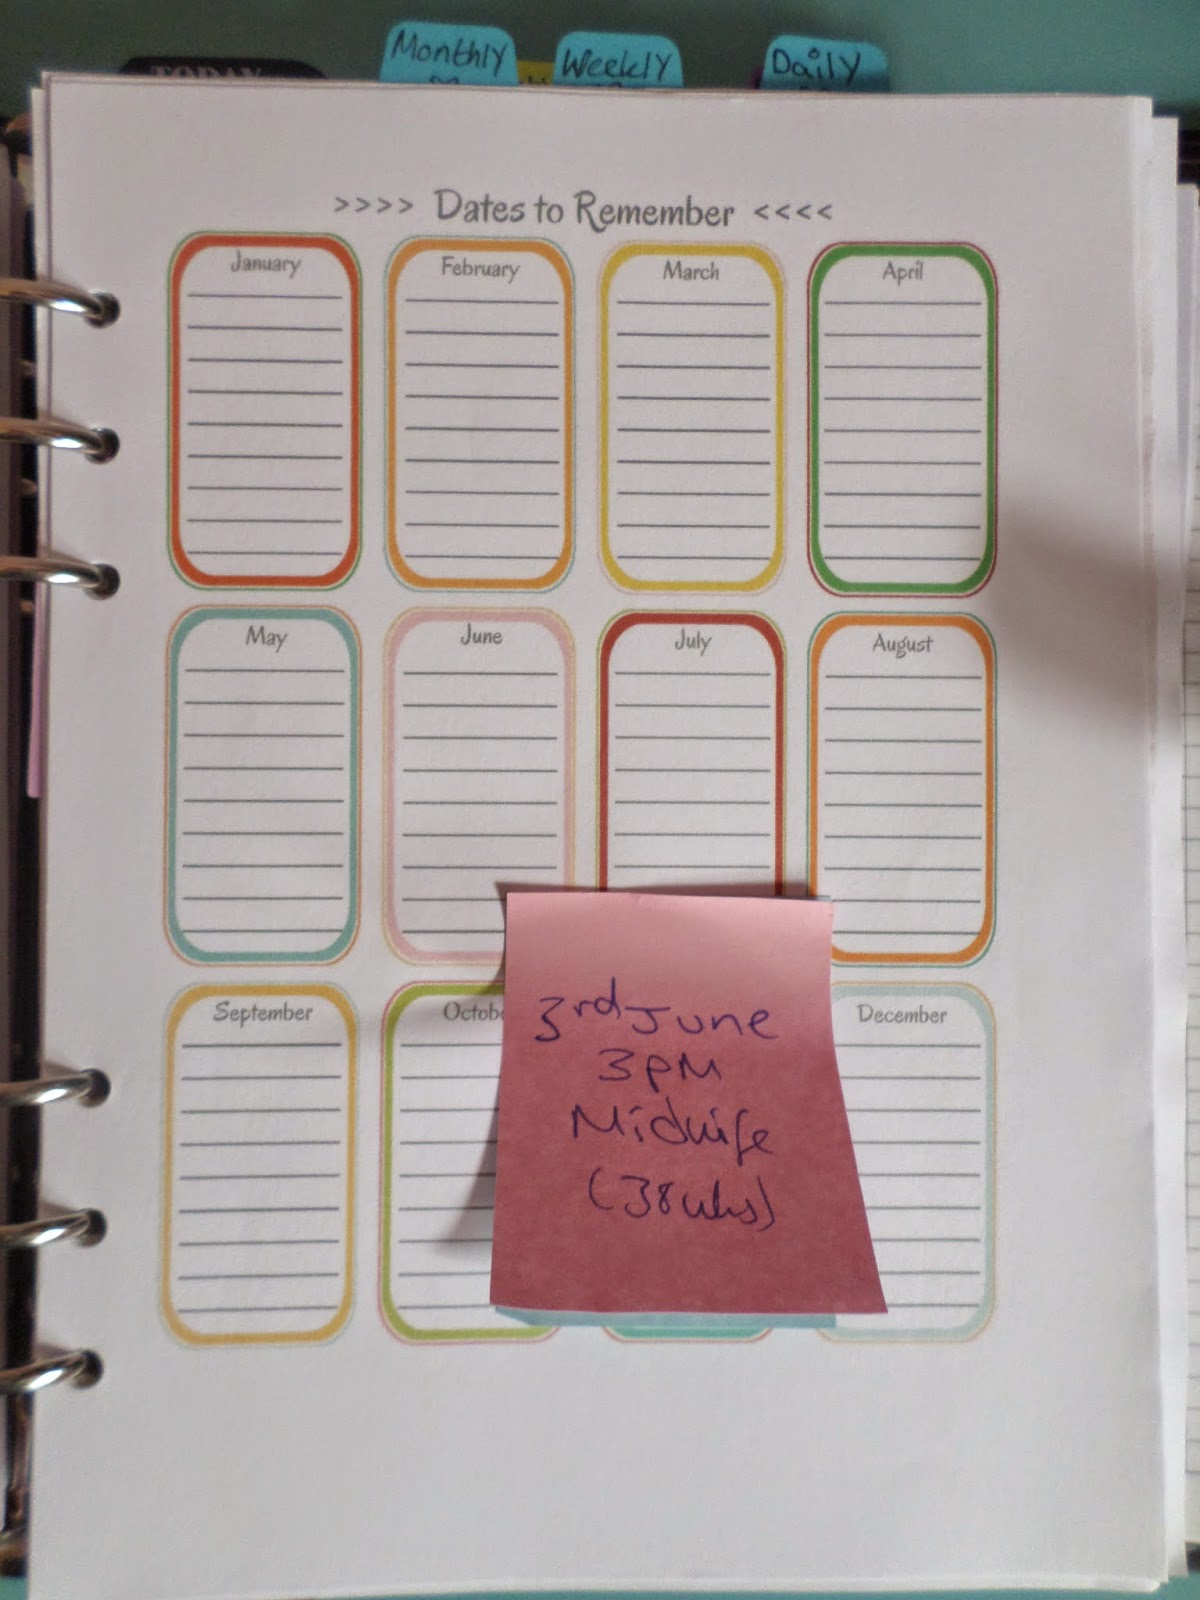 Monthly
Weekly
Daily
TODAY
>>>> Dates to Remember <<<<
January
February
March
April
May
June
July
August
September
Octobe
December
3rd June
3pm
Midwife
(38wks)